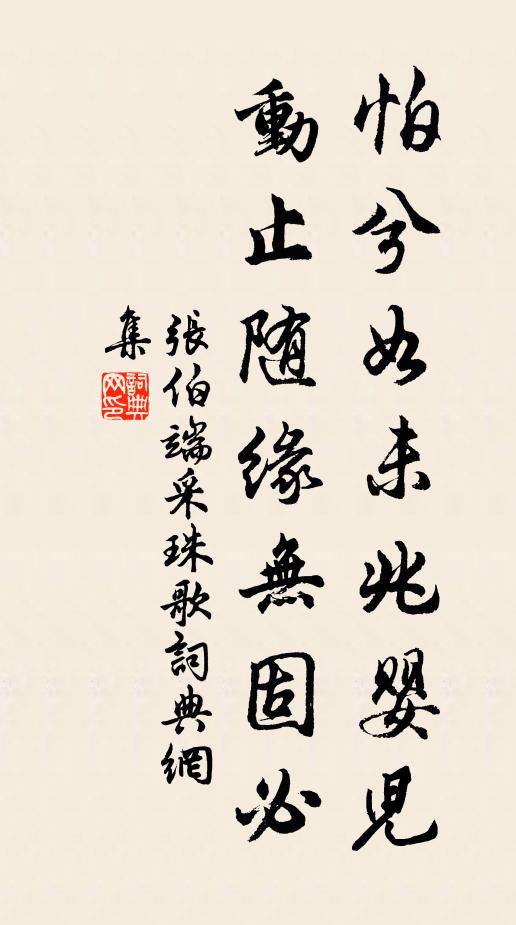 怕兮如未兆嬰兒
動止随緣無固必
張伯端采珠歌詞典網
集
詞典
网印